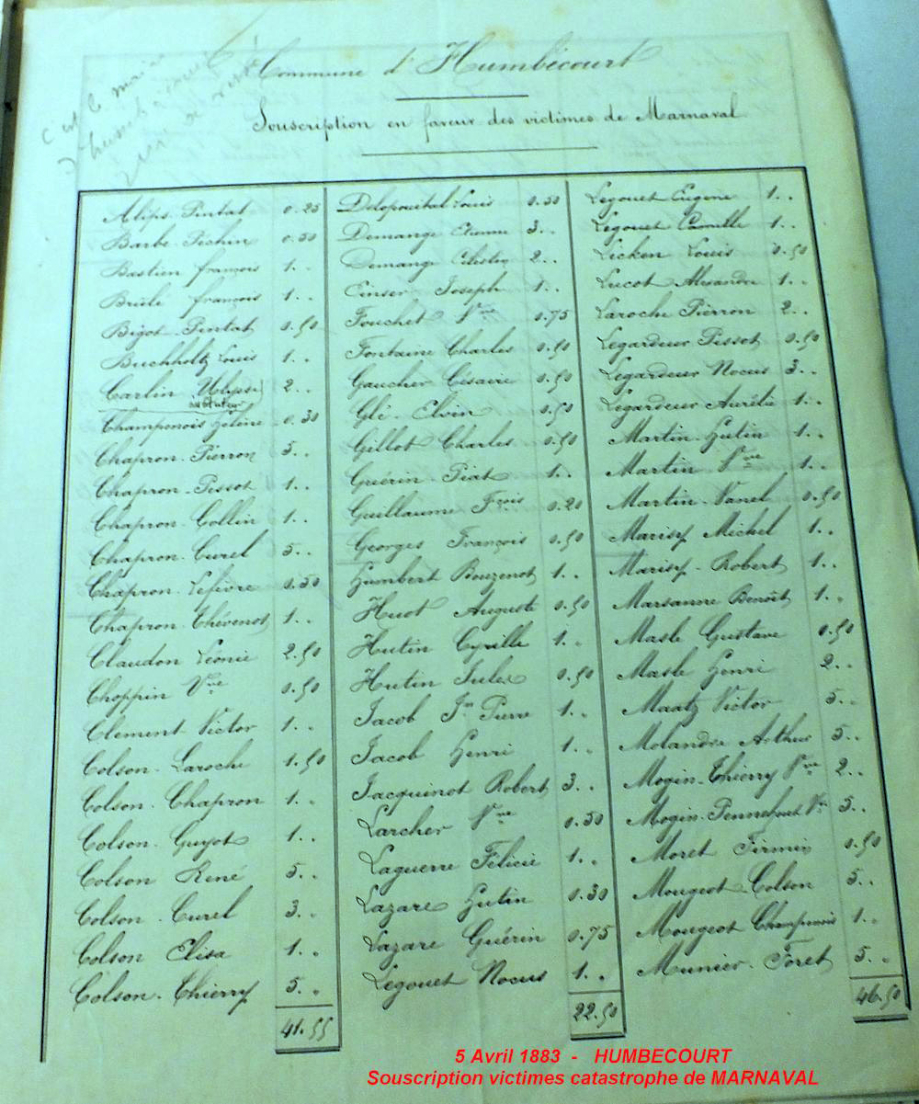 c'est le maire
Commune d'Humbécourt
Souscription en faveur des victimes de Marnaval
Alips-Pintat 0.25
Barbe-Pichin 0.50
Bastien françois 1..
Brulé françois 1..
Bigot-Pintat 0.50
Buchholtz Louis 1..
Carlin Ulysse 2..
Champenois Hélène 0.30
Chapron-Pierron 5..
Chapron-Pissot 1..
Chapron-Collin 1..
Chapron-Curel 5..
Chapron-Lefèvre 0.50
Chapron-Thévenot 1..
Claudon Léonie 2.50
Choppin Vve 0.50
Clément Victor 1..
Colson-Laroche 1.50
Colson-Chapron 1..
Colson-Guyot 1..
Colson René 5..
Colson-Curel 3..
Colson Elisa 1..
Colson-Thierry 5..
41.55
Louis 0.50
Demange Etienne 3..
Demange Célestin 2..
Cinser Joseph 1..
Fouchet Vve 0.75
Fontaine Charles 0.50
Gaucher Césaire 0.50
Glé-Eloin 0.50
Gillot Charles 0.50
Guérin-Piat 1..
Guillaume Frois 0.20
Georges François 0.50
Humbert Bouzenot 1..
Huot Auguste 0.50
Hutin Cyrille 1..
Hutin Jules 0.50
Jacob Jn Pierre 1..
Jacob Henri 1..
Jacquinot Robert 3..
Larcher Vve 0.50
Laguerre Félicie 1..
Lazare Hutin 0.30
Lazare Guérin 0.75
Legouet Nocus 1..
22.50
Legouet Eugène 1..
Legouet Camille 1..
Licken Louis 0.50
Lucot Alexandre 1..
Laroche Pierron 2..
Legardeur Pissot 0.50
Legardeur Nocus 3..
Legardeur Aurélie 1..
Martin-Hutin 1..
Martin Vve 1..
Martin-Vanel 0.50
Marisy Michel 1..
Marisy-Robert 1..
Marsanne Benoît 1..
Masle Gustave 0.50
Masle Henri 2..
Maatz Victor 5..
Molandre Arthur 5..
Mogin-Thierry Vve 2..
Mogin-Pennefont Vve 5..
Moret Firmin 0.50
Mougeot-Colson 5..
Mougeot Champenois 1..
Munier-Foret 5..
46.50
5 Avril 1883 - HUMBECOURT
Souscription victimes catastrophe de MARNAVAL